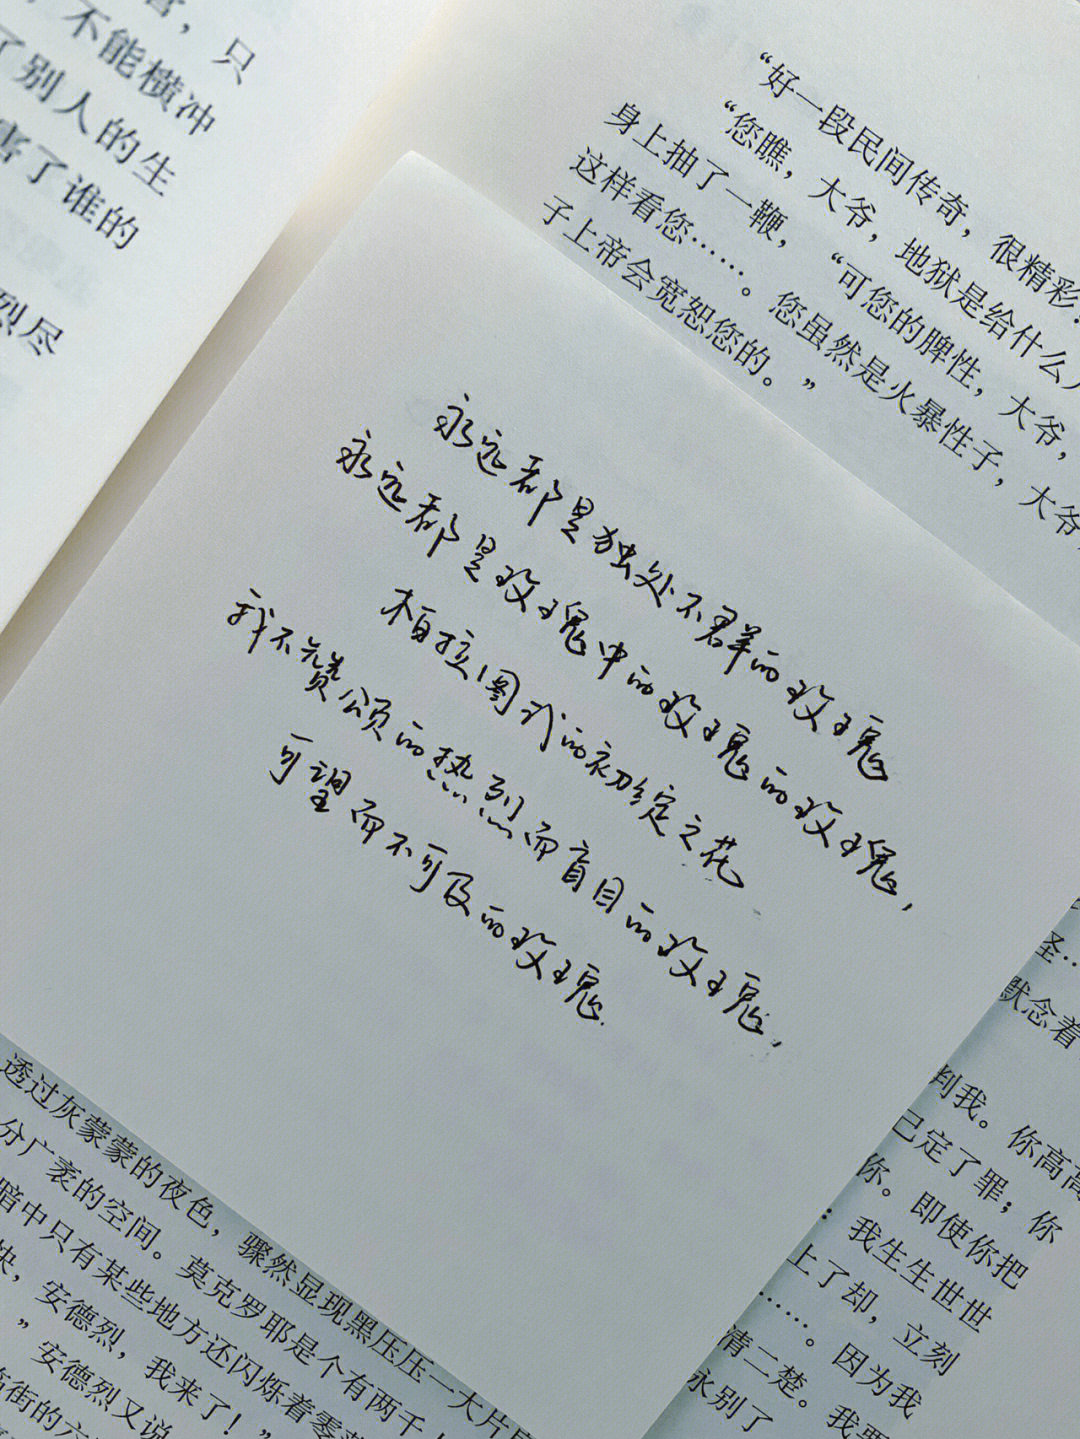 害，只
，不能横冲
了别人的生
害了谁的
烈尽
“好一段民间传奇，很精彩！
“您瞧，大爷，地狱是给什么人
身上抽了一鞭，“可您的脾性，大爷，
这样看您……。您虽然是火暴性子，大爷，
子上帝会宽恕您的。”
永远都是独处不群的玫瑰
永远都是玫瑰中的玫瑰的玫瑰，
柏拉图式的初绽之花
我不赞颂的热烈而盲目的玫瑰，
可望而不可及的玫瑰.
圣…
默念着
判我。你高高
己定了罪；你
你。即使你把
：我生生世世
上了却，立刻
……。因为我
清二楚。我要
永别了
透过灰蒙蒙的夜色，骤然显现黑压压一大片房
分广袤的空间。莫克罗耶是个有两千
暗中只有某些地方还闪烁着零落
快，安德烈，我来了！”
”安德烈又说
街的六